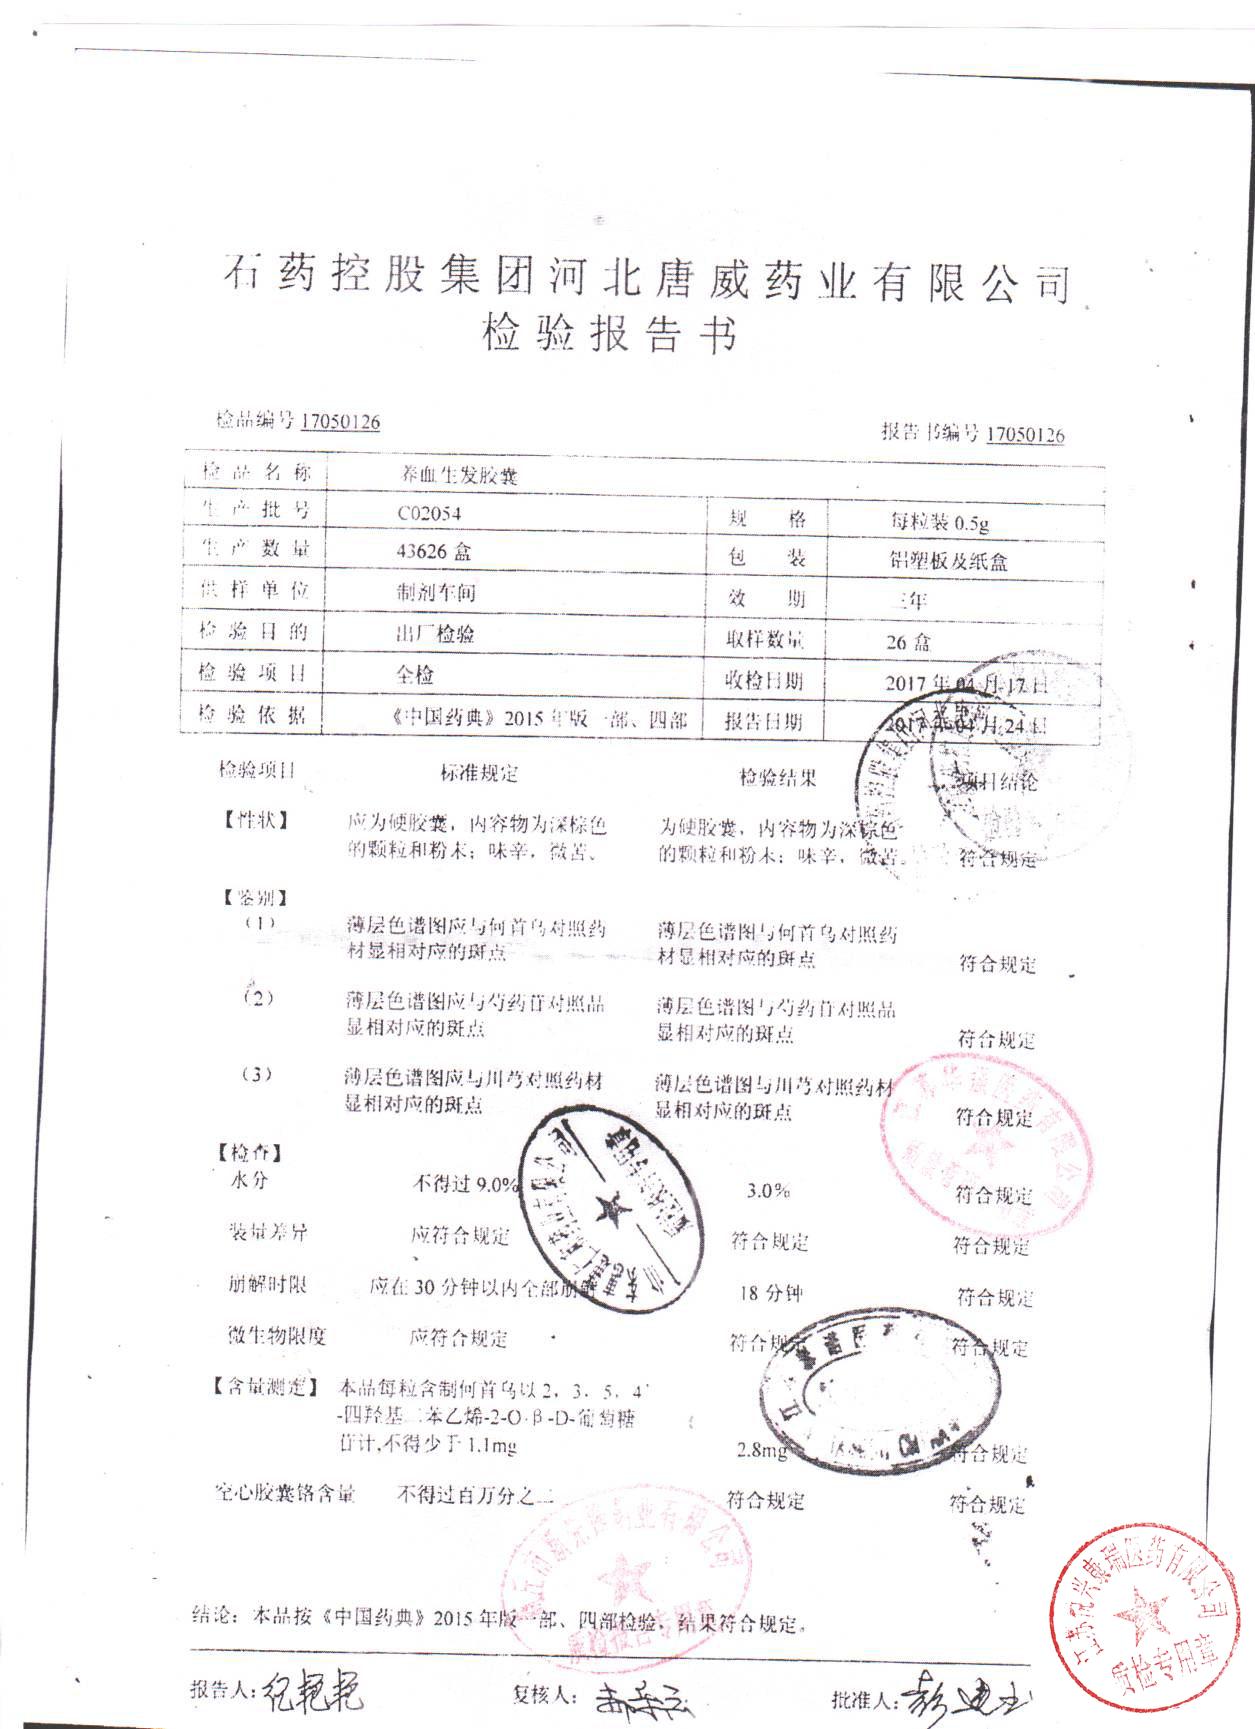 石药控股集团河北唐威药业有限公司
检验报告书
检品编号 17050126
报告书编号 17050126
检品名称 养血生发胶囊
生产批号 C02054 规格 每粒装 0.5g
生产数量 43626 盒 包装 铝塑板及纸盒
供样单位 制剂车间 效期 三年
检验目的 出厂检验 取样数量 26 盒
检验项目 全检 收检日期 2017 年 04 月 17 日
检验依据 《中国药典》2015 年版一部、四部 报告日期 2017 年 04 月 24 日
检验项目 标准规定 检验结果 项目结论
【性状】 应为硬胶囊，内容物为深棕色 为硬胶囊，内容物为深棕色
的颗粒和粉末；味辛，微苦、 的颗粒和粉末；味辛，微苦。 符合规定
【鉴别】
（1） 薄层色谱图应与何首乌对照药 薄层色谱图与何首乌对照药
材显相对应的斑点 材显相对应的斑点 符合规定
（2） 薄层色谱图应与芍药苷对照品 薄层色谱图与芍药苷对照品
显相对应的斑点 显相对应的斑点 符合规定
（3） 薄层色谱图应与川芎对照药材 薄层色谱图与川芎对照药材
显相对应的斑点 显相对应的斑点 符合规定
【检查】
水分 不得过 9.0% 3.0% 符合规定
装量差异 应符合规定 符合规定 符合规定
崩解时限 应在 30 分钟以内全部崩解 18 分钟 符合规定
微生物限度 应符合规定 符合规定 符合规定
【含量测定】 本品每粒含制何首乌以 2，3，5，4'
-四羟基二苯乙烯-2-O-β-D-葡萄糖
苷计,不得少于 1.1mg 2.8mg 符合规定
空心胶囊铬含量 不得过百万分之二 符合规定 符合规定
结论：本品按《中国药典》2015 年版一部、四部检验，结果符合规定。
报告人: 纪艳艳 复核人: 批准人:
质检专用章